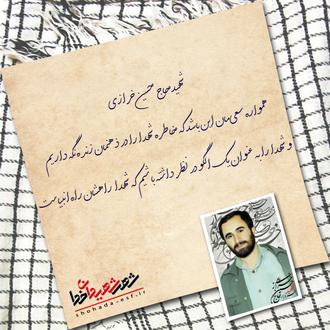 شهید حاج حسین خرازی
همواره سعی مان این باشد که خاطره شهدا را در ذهنمان زنده نگه داریم
و شهدا را به عنوان یک الگو در نظر داشته باشیم که شهدا راهشان راه انبیاست
shohada-esf.ir